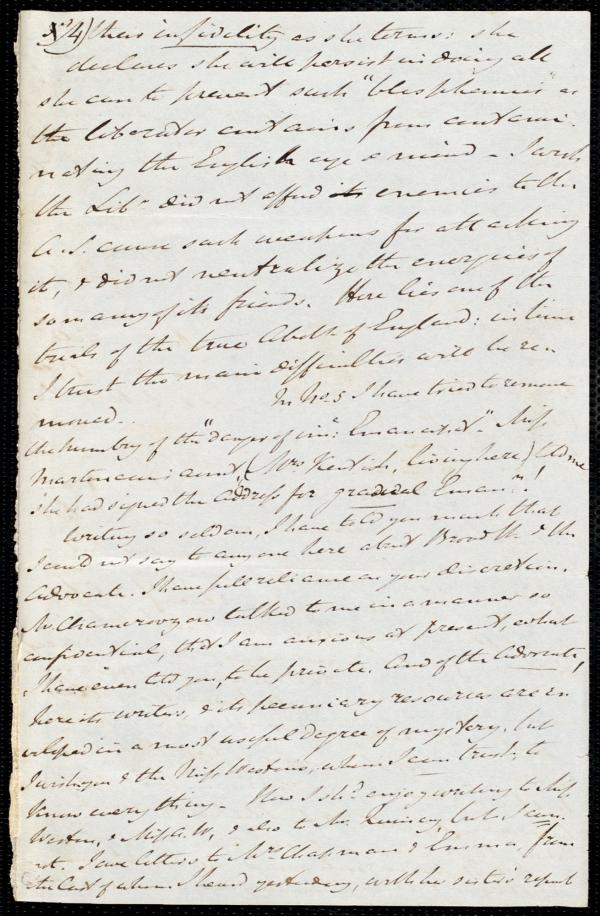 4) their infidelity as she terms: she
declares she will persist in doing all
she can to prevent such "blasphemies" as
the liberator contains from contami-
nating the English age & mind - I wish
the Libr did not afford its enemies to the
A.S. cause such weapons for attacking
it, & did not neutralize the energies of
so many of its friends. Here lies one of the
trials of the true Abolt of England: in time
I trust the main difficulties will be re-
moved. - In No. 5 I have tried to remove
the humbug of the "danger of imm. Emancipat" - Miss
Martineau's aunt, (Mrs Kentish, living here) told me
she had signed the address for gradual Eman.n!
Writing so seldom, I have told you much that
I could not say to anyone here about Broad St. & the
Advocate. I have full reliance on your discretion.
Mr. Chamerovzow talked to me in a manner so
confidential, that I am anxious at present, what
I have even told you, to be private. And of the Advocate,
here its writers, & its pecuniary resources are en-
veloped in a most useful degree of mystery, but
I wish you & the Miss Westons, whom I can trust, to
know everything - How I shd. enjoy writing to Miss
Weston, & Miss A. W., & also to Mr. Quincy, but I can
not. I owe letters to Mrs Chapman & Emma, from
the last of whom I heard yesterday, with her sister's